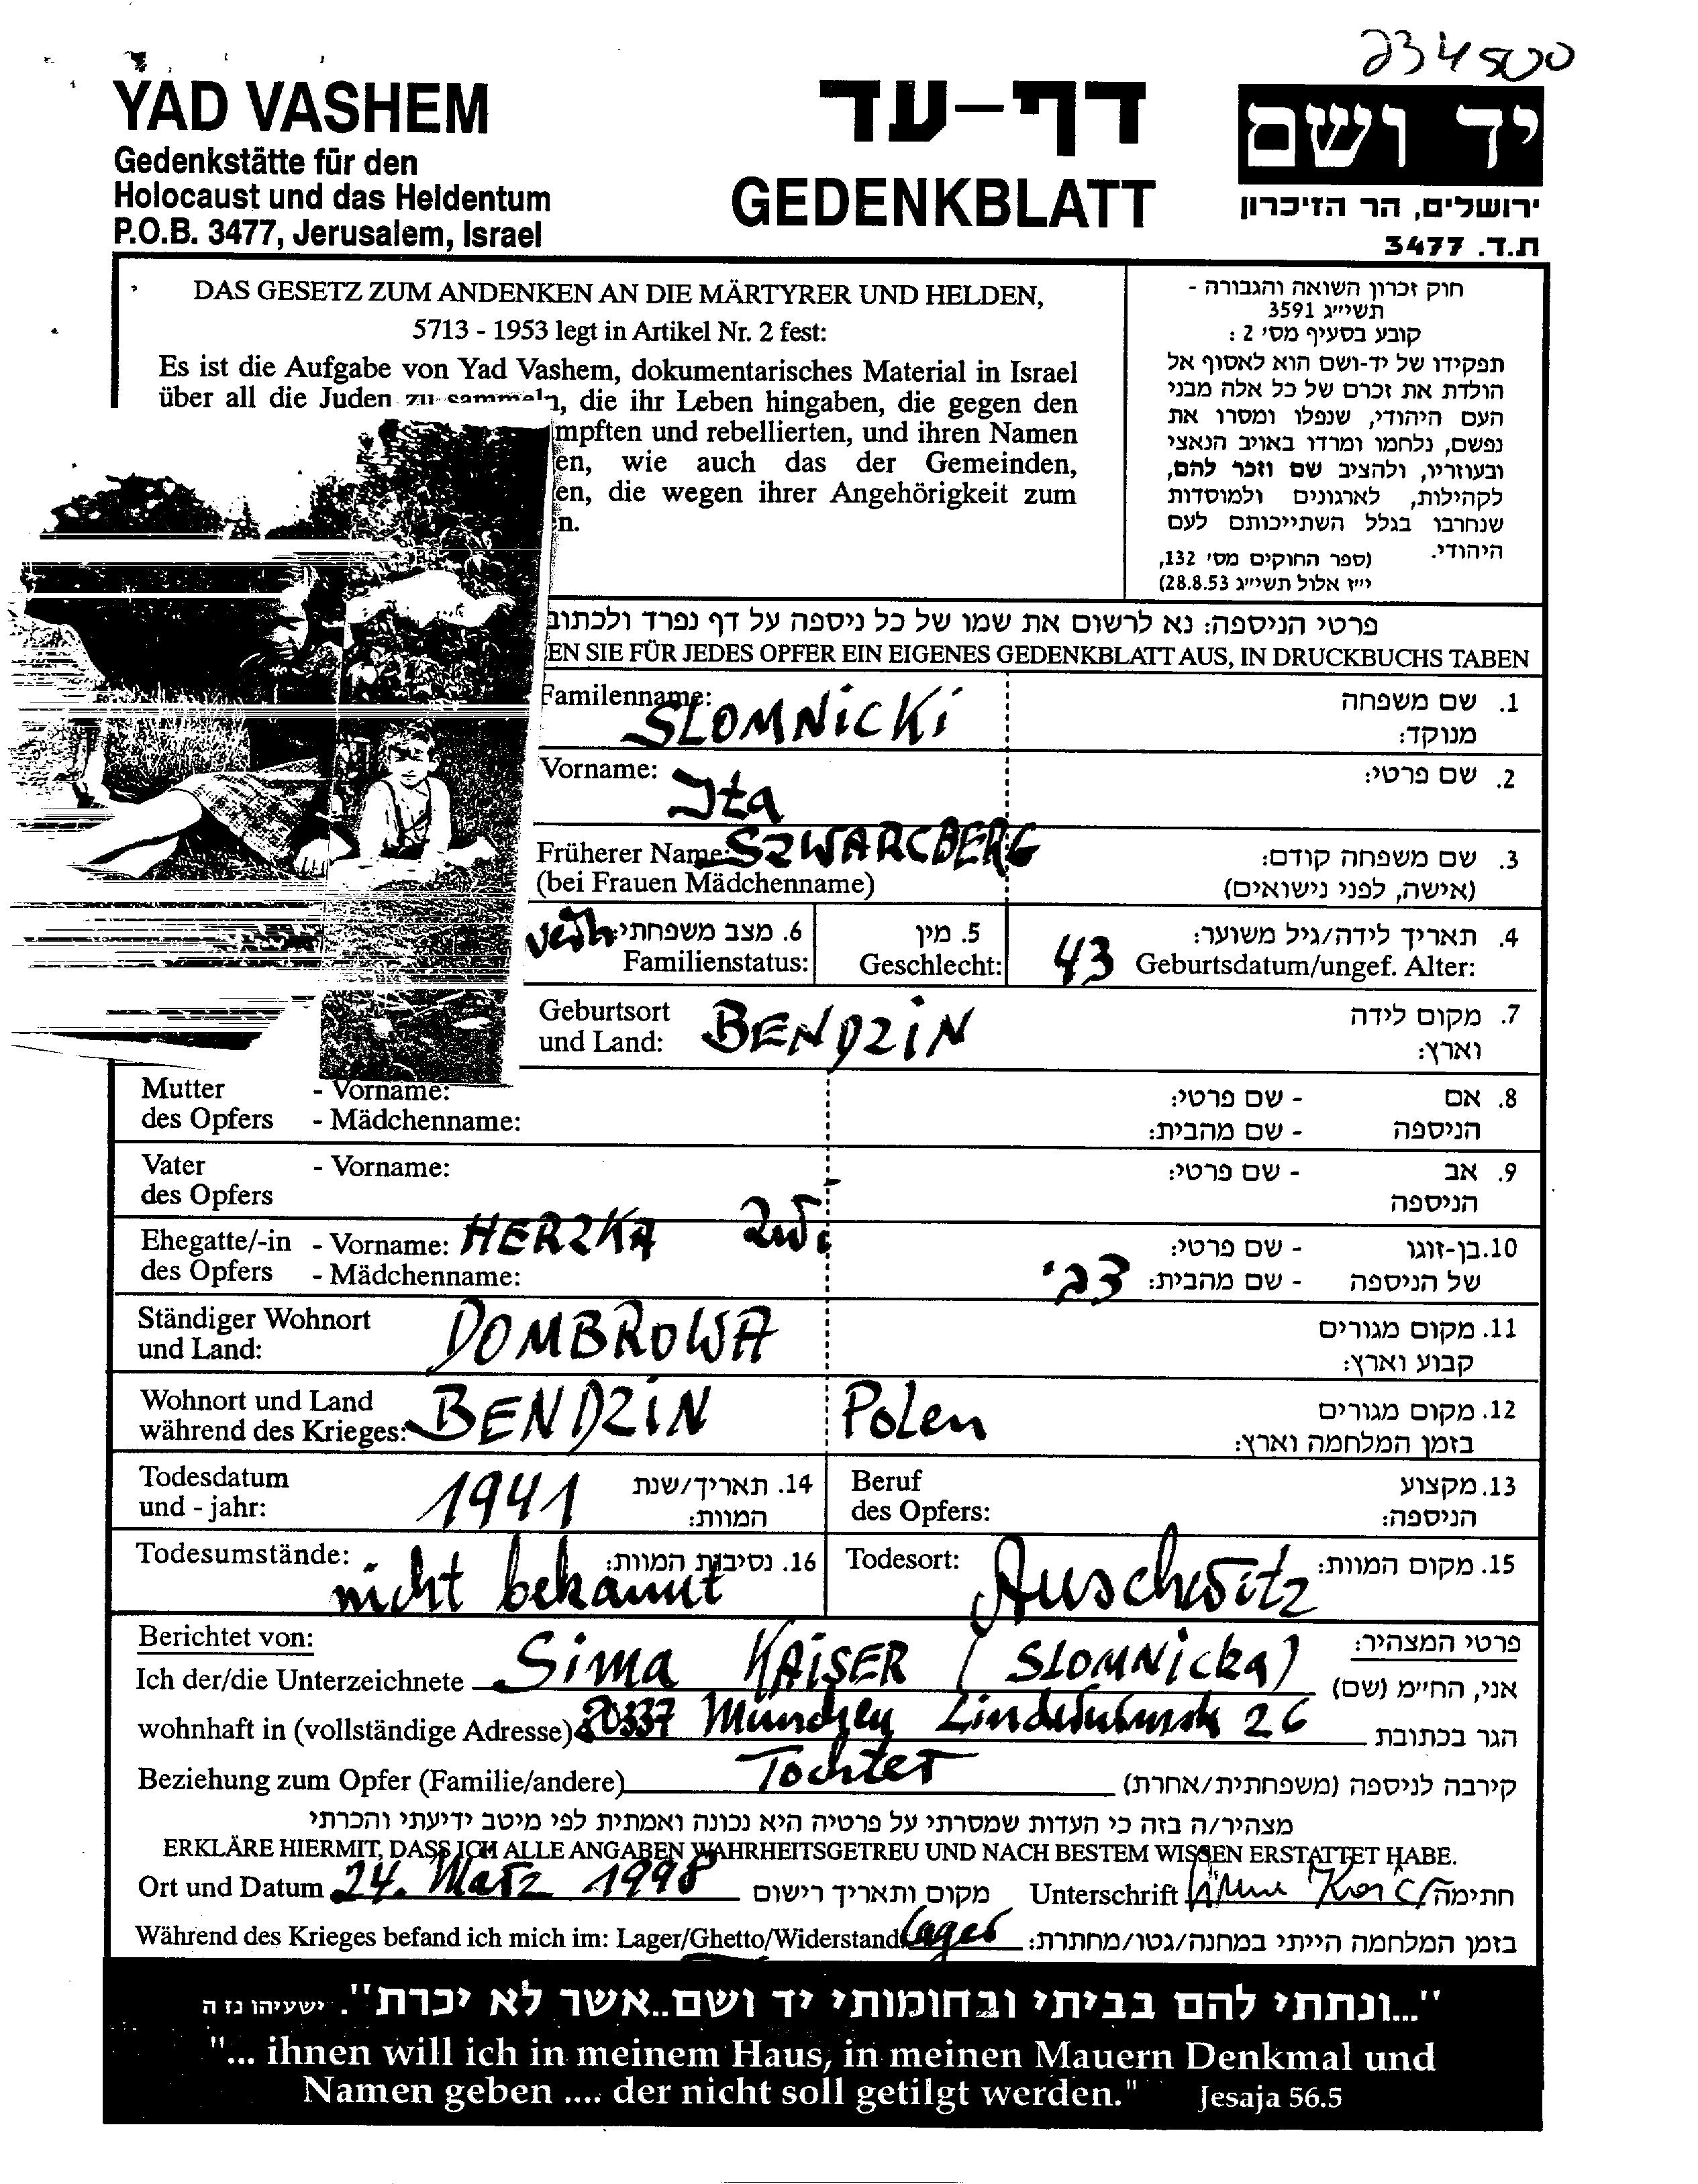 234500
YAD VASHEM
Gedenkstätte für den
Holocaust und das Heldentum
P.O.B. 3477, Jerusalem, Israel
דף-עד
GEDENKBLATT
יד ושם
ירושלים, הר הזיכרון
ת.ד. 3477
DAS GESETZ ZUM ANDENKEN AN DIE MÄRTYRER UND HELDEN,
5713 - 1953 legt in Artikel Nr. 2 fest:
Es ist die Aufgabe von Yad Vashem, dokumentarisches Material in Israel
über all die Juden zu sammeln, die ihr Leben hingaben, die gegen den
mpften und rebellierten, und ihren Namen
en, wie auch das der Gemeinden,
en, die wegen ihrer Angehörigkeit zum
n.
חוק זכרון השואה והגבורה -
תשי״ג 3591
קובע בסעיף מס׳ 2 :
תפקידו של יד-ושם הוא לאסוף אל
הולדת את זכרם של כל אלה מבני
העם היהודי, שנפלו ומסרו את
נפשם, נלחמו ומרדו באויב הנאצי
ובעוזריו, ולהציב שם וזכר להם,
לקהילות, לארגונים ולמוסדות
שנחרבו בגלל השתייכותם לעם
היהודי.
(ספר החוקים מס׳ 132,
י״ז אלול תשי״ג 28.8.53)
פרטי הניספה: נא לרשום את שמו של כל ניספה על דף נפרד ולכתוב
EN SIE FÜR JEDES OPFER EIN EIGENES GEDENKBLATT AUS, IN DRUCKBUCHS TABEN
Familenname: SLOMNiCKi
1. שם משפחה
מנוקד:
Vorname: Ita
2. שם פרטי:
Früherer Name: SZWARCBERG
(bei Frauen Mädchenname)
3. שם משפחה קודם:
(אישה, לפני נישואים)
verh 6. מצב משפחתי:
Familienstatus:
5. מין
Geschlecht:
43
4. תאריך לידה/גיל משוער:
Geburtsdatum/ungef. Alter:
Geburtsort
und Land: BENDZiN
7. מקום לידה
וארץ:
Mutter - Vorname:
des Opfers - Mädchenname:
8. אם - שם פרטי:
הניספה - שם מהבית:
Vater - Vorname:
des Opfers
9. אב - שם פרטי:
הניספה
Ehegatte/-in - Vorname: HERZKA Zwi
des Opfers - Mädchenname:
10. בן-זוגו - שם פרטי:
של הניספה - שם מהבית: צבי
Ständiger Wohnort
und Land: DOMBROWA
11. מקום מגורים
קבוע וארץ:
Wohnort und Land
während des Krieges: BENDZiN Polen
12. מקום מגורים
בזמן המלחמה וארץ:
Todesdatum
und - jahr: 1941
14. תאריך/שנת
המוות:
Beruf
des Opfers:
13. מקצוע
הניספה:
Todesumstände: nicht bekannt
16. נסיבות המוות:
Todesort: Auschwitz
15. מקום המוות:
Berichtet von:
פרטי המצהיר:
Ich der/die Unterzeichnete Sima KAiSER (SLOMNicka)
אני, החי״מ (שם)
wohnhaft in (vollständige Adresse) 80337 München 26
הגר בכתובת
Beziehung zum Opfer (Familie/andere) Tochter
קירבה לניספה (משפחתית/אחרת)
מצהיר/ה בזה כי העדות שמסרתי על פרטיה היא נכונה ואמתית לפי מיטב ידיעתי והכרתי
ERKLÄRE HIERMIT, DASS ICH ALLE ANGABEN WAHRHEITSGETREU UND NACH BESTEM WISSEN ERSTATTET HABE.
Ort und Datum 24. März 1998
מקום ותאריך רישום
Unterschrift
חתימה
Während des Krieges befand ich mich im: Lager/Ghetto/Widerstand Lager
בזמן המלחמה הייתי במחנה/גטו/מחתרת:
"...ונתתי להם בביתי ובחומותי יד ושם..אשר לא יכרת". ישעיהו נו ה
"... ihnen will ich in meinem Haus, in meinen Mauern Denkmal und
Namen geben .... der nicht soll getilgt werden." Jesaja 56.5